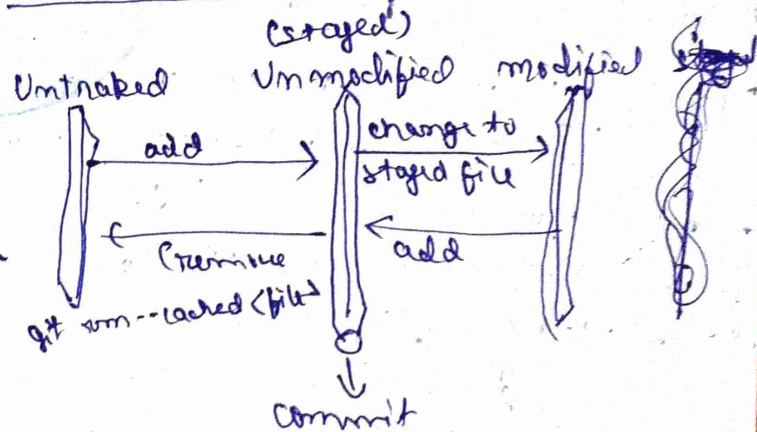 (staged)
Untraked Unmodified modified
add
change to
staged file
(remove
add
git rm --cached <file>
commit